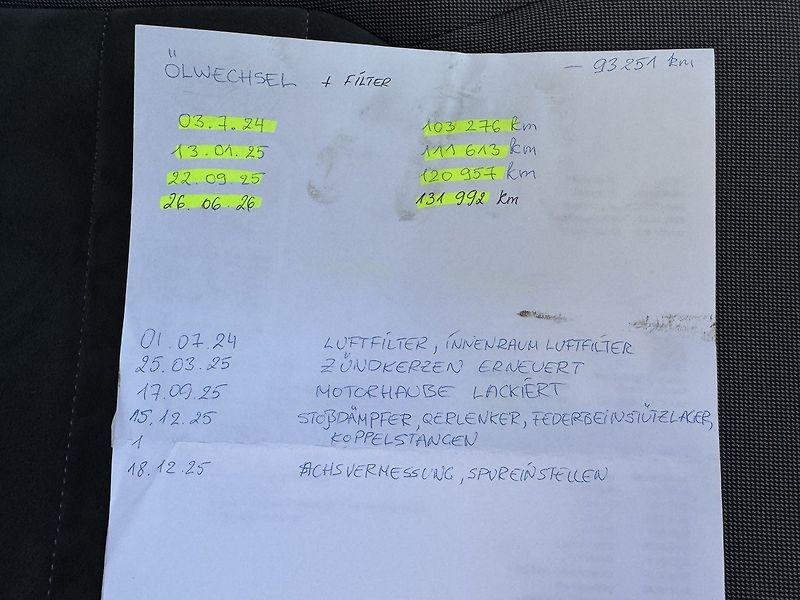 ÖLWECHSEL + FILTER – 93251 km
03.7.24 103 276 km
13.01.25 111 613 km
22.09.25 120 957 km
26.06.26 131 992 km
01.07.24 LUFTFILTER, INNENRAUM LUFTFILTER
25.03.25 ZÜNDKERZEN ERNEUERT
17.09.25 MOTORHAUBE LACKIERT
15.12.25 STOßDÄMPFER, QERLENKER, FEDERBEINSTÜTZLAGER,
1 KOPPELSTANGEN
18.12.25 ACHSVERMESSUNG, SPUREINSTELLEN